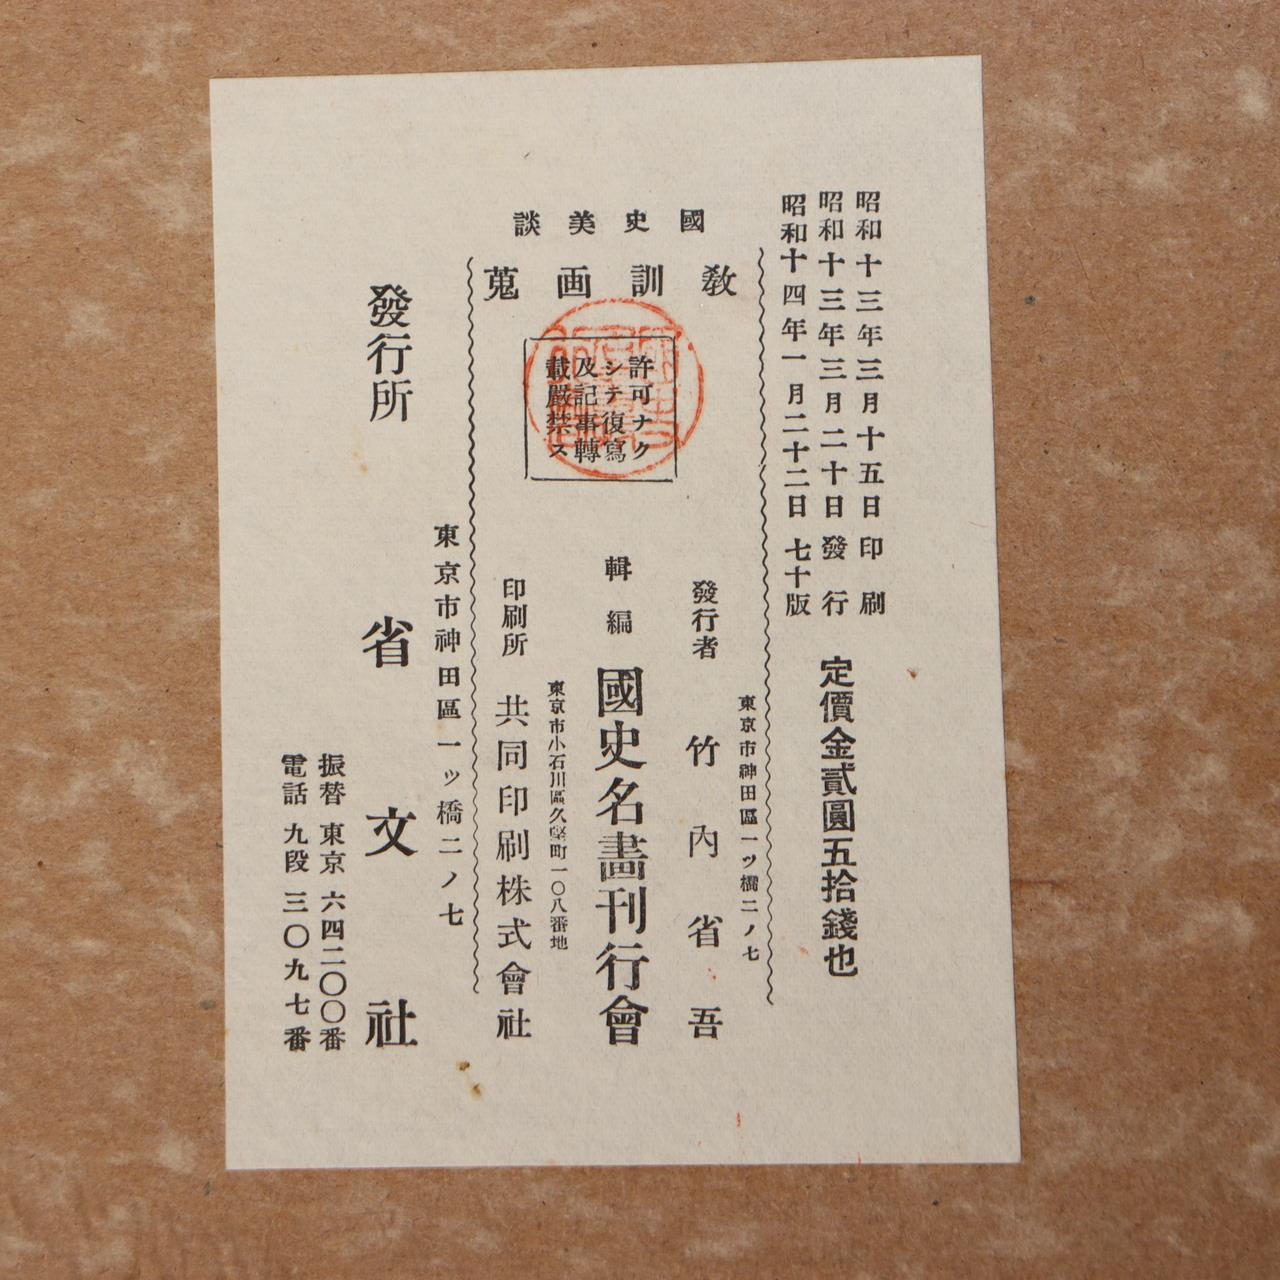 昭和十三年三月十五日 印刷
昭和十三年三月二十日 發行
昭和十四年一月二十二日 七十版
定價金貳圓五拾錢也
國史美談
敎訓画蒐
許可ナク
シテ復寫
及記事轉
載嚴禁ス
東京市神田區一ツ橋二ノ七
發行者 竹內省吾
輯編 國史名畵刊行會
東京市小石川區久堅町一〇八番地
印刷所 共同印刷株式會社
東京市神田區一ツ橋二ノ七
發行所 省文社
振替東京六四二〇〇番
電話九段三〇九七番